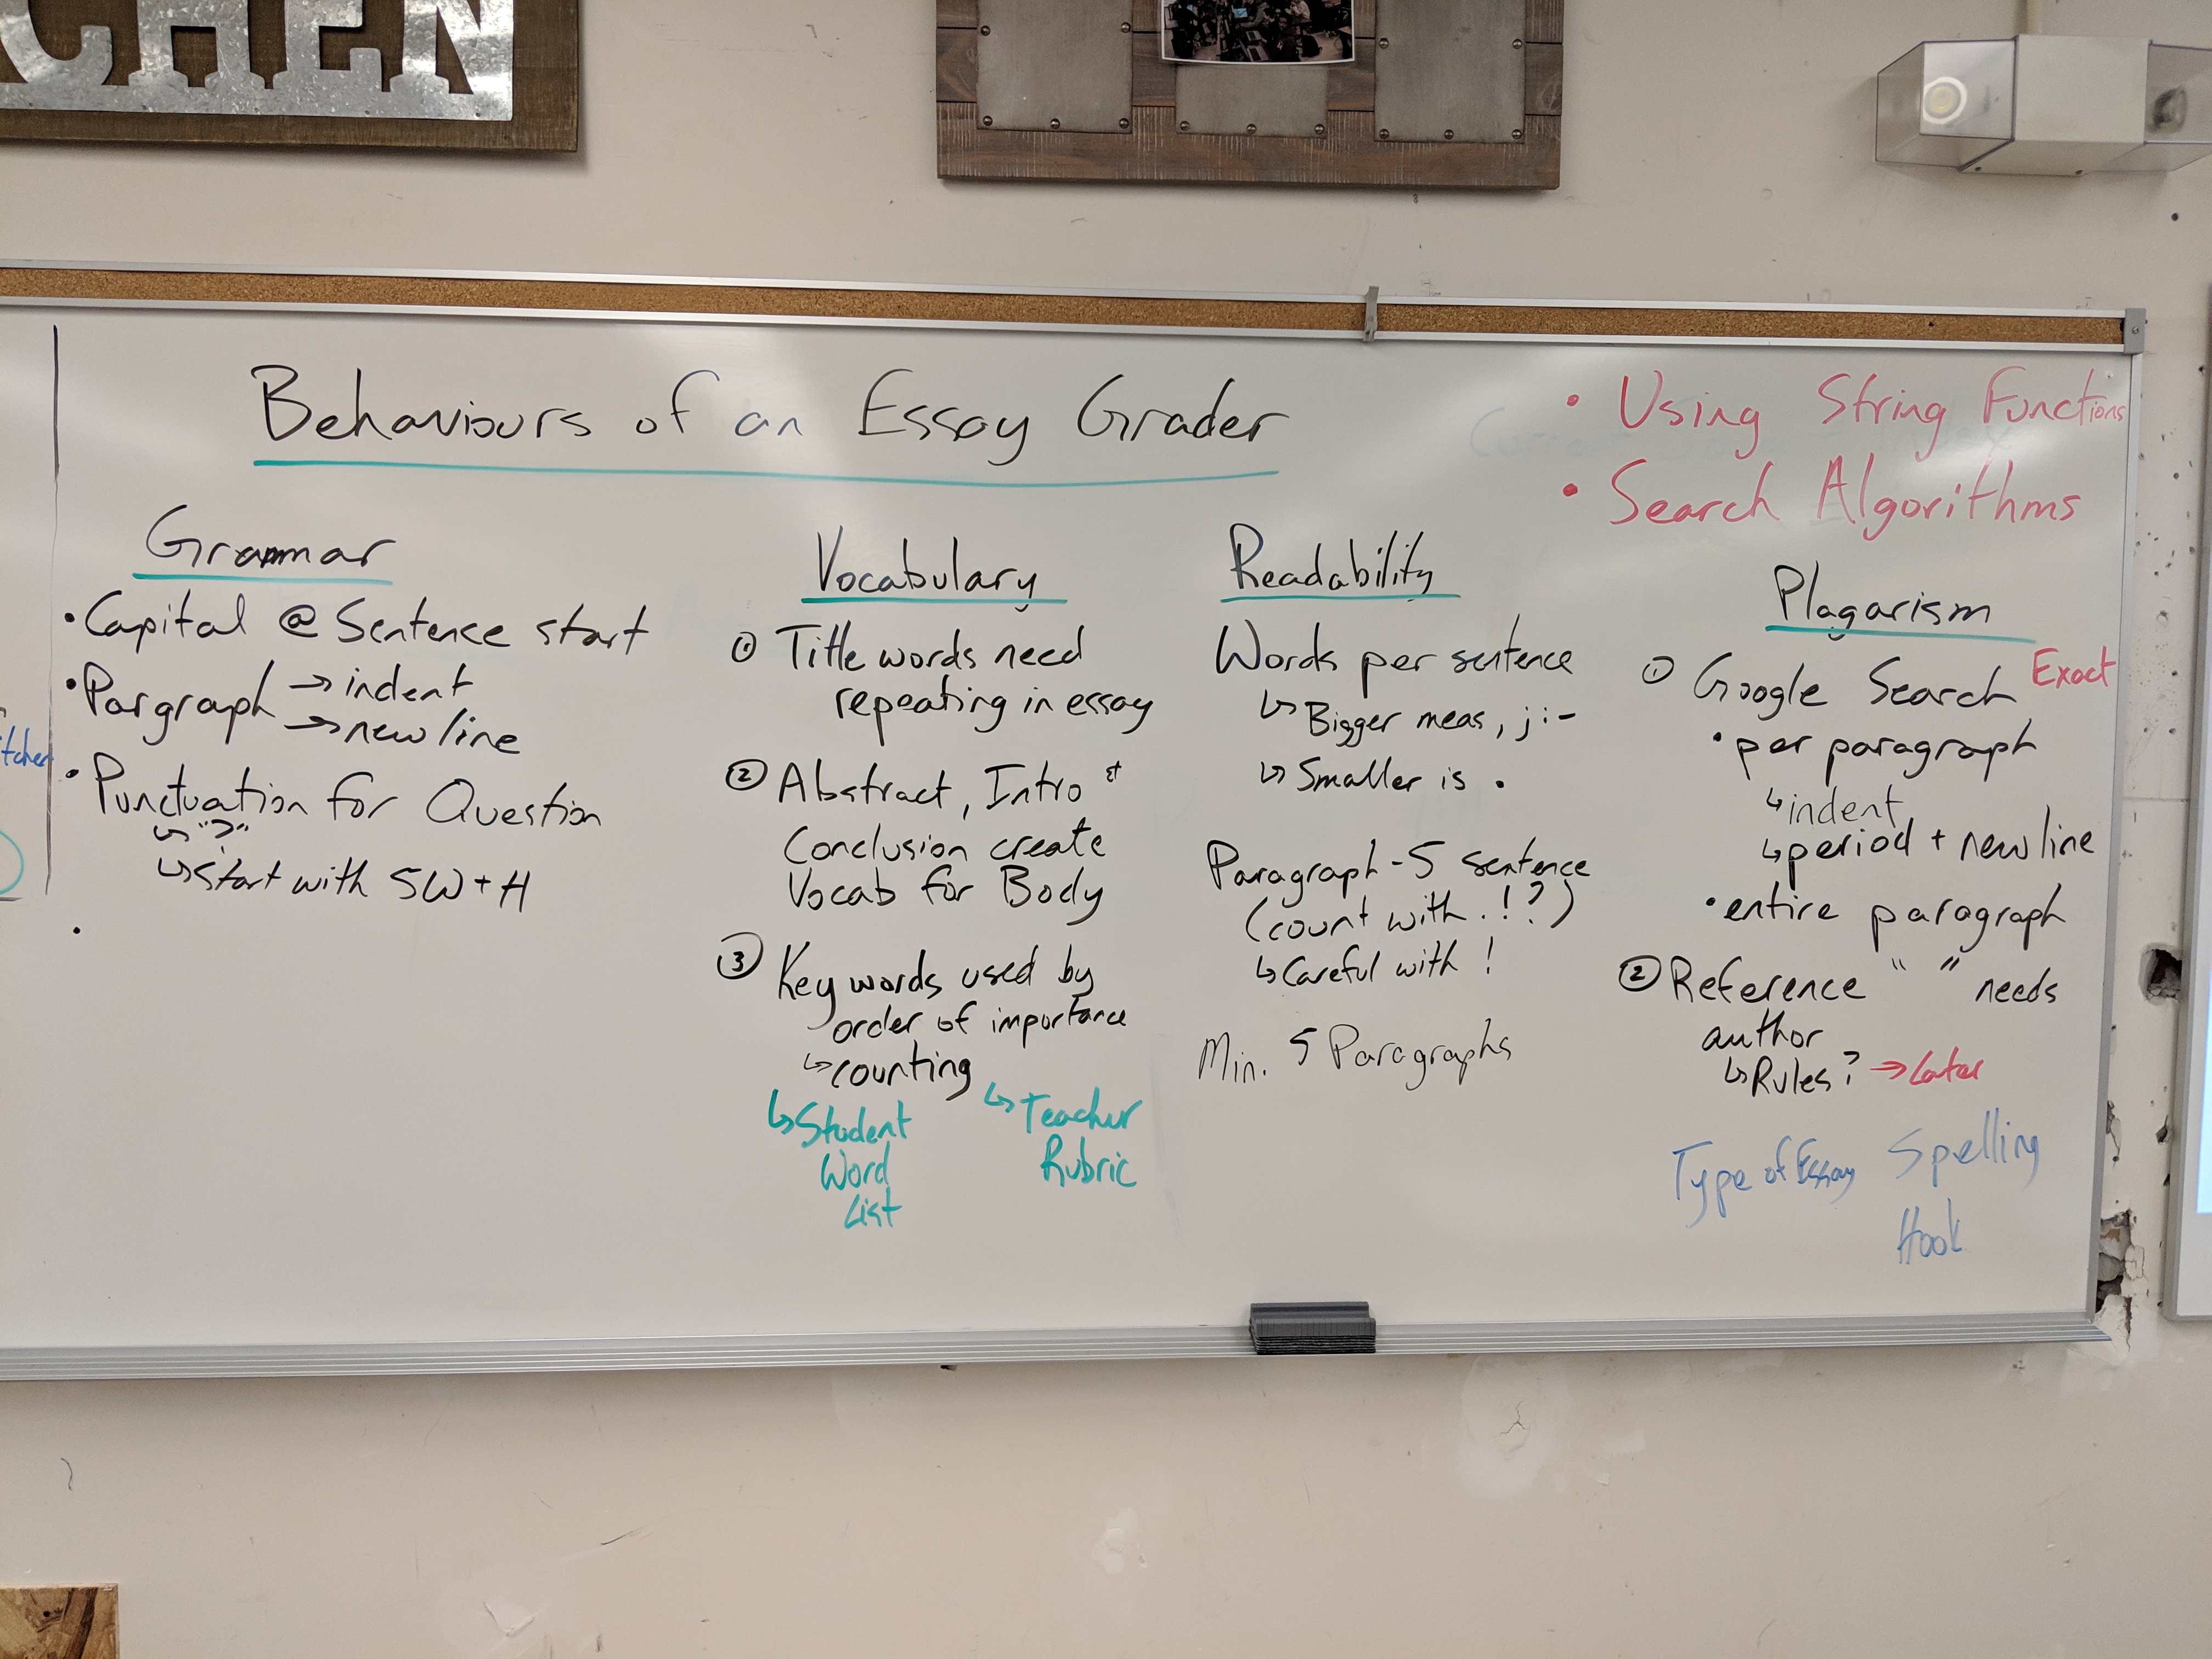 CHEN
Behaviours of an Essay Grader
• Using String Functions
• Search Algorithms
Grammar
• Capital @ Sentence start
• Pargraph → indent
→ new line
• Punctuation for Question
↳ "?"
↳ start with 5W + H
•
Vocabulary
① Title words need
repeating in essay
② Abstract, Intro &
Conclusion create
Vocab for Body
③ Key words used by
order of importance
↳ counting
↳ Student
Word
List
↳ Teacher
Rubric
Readability
Words per sentence
↳ Bigger meas , j : -
↳ Smaller is .
Paragraph - 5 sentence
(count with . ! ?)
↳ Careful with !
Min. 5 Paragraphs
Plagarism
① Google Search Exact
• per paragraph
↳ indent
↳ period + new line
• entire paragraph
② Reference " " needs
author
↳ Rules? → Later
Type of Essay
Spelling
Hook